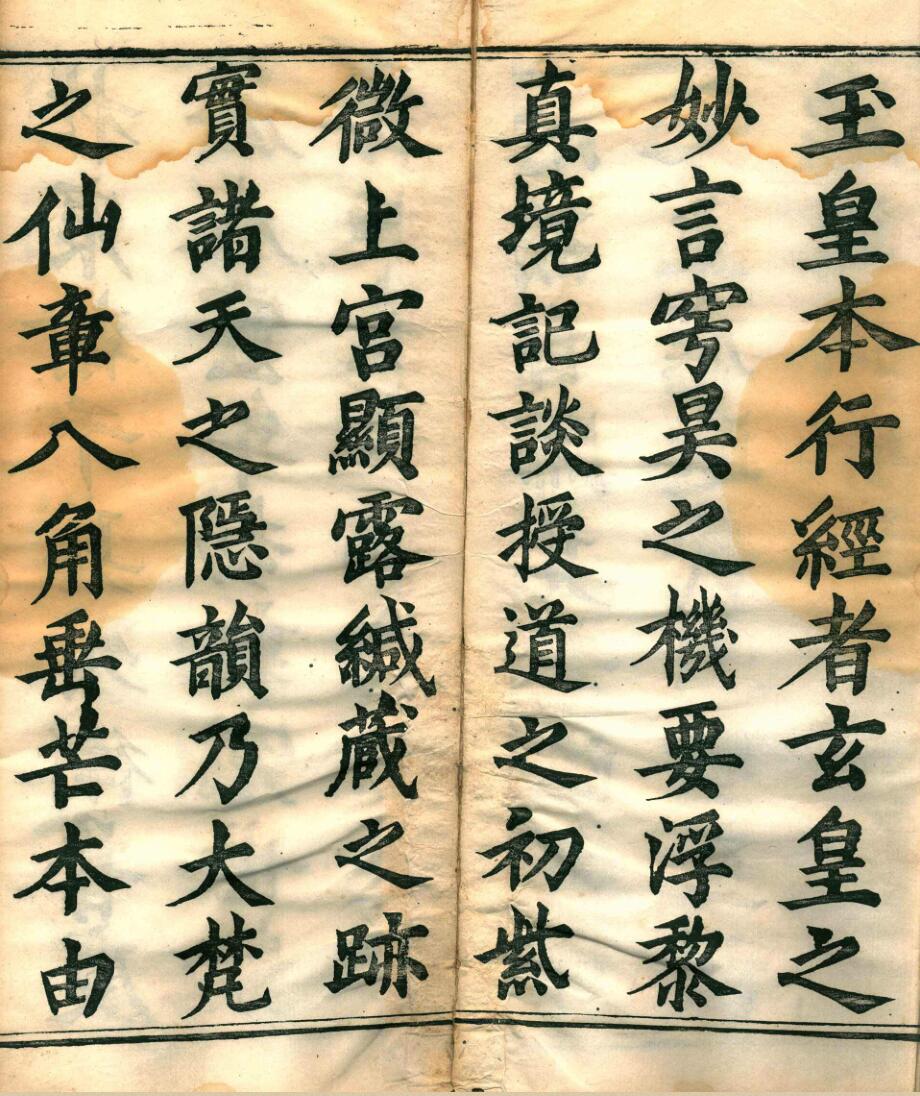 玉皇本行經者玄皇之
妙言穹昊之機要浮黎
真境記談授道之初紫
微上宮顯露緘蔵之跡
實諸天之隱韻乃大梵
之仙章八角垂芒本由